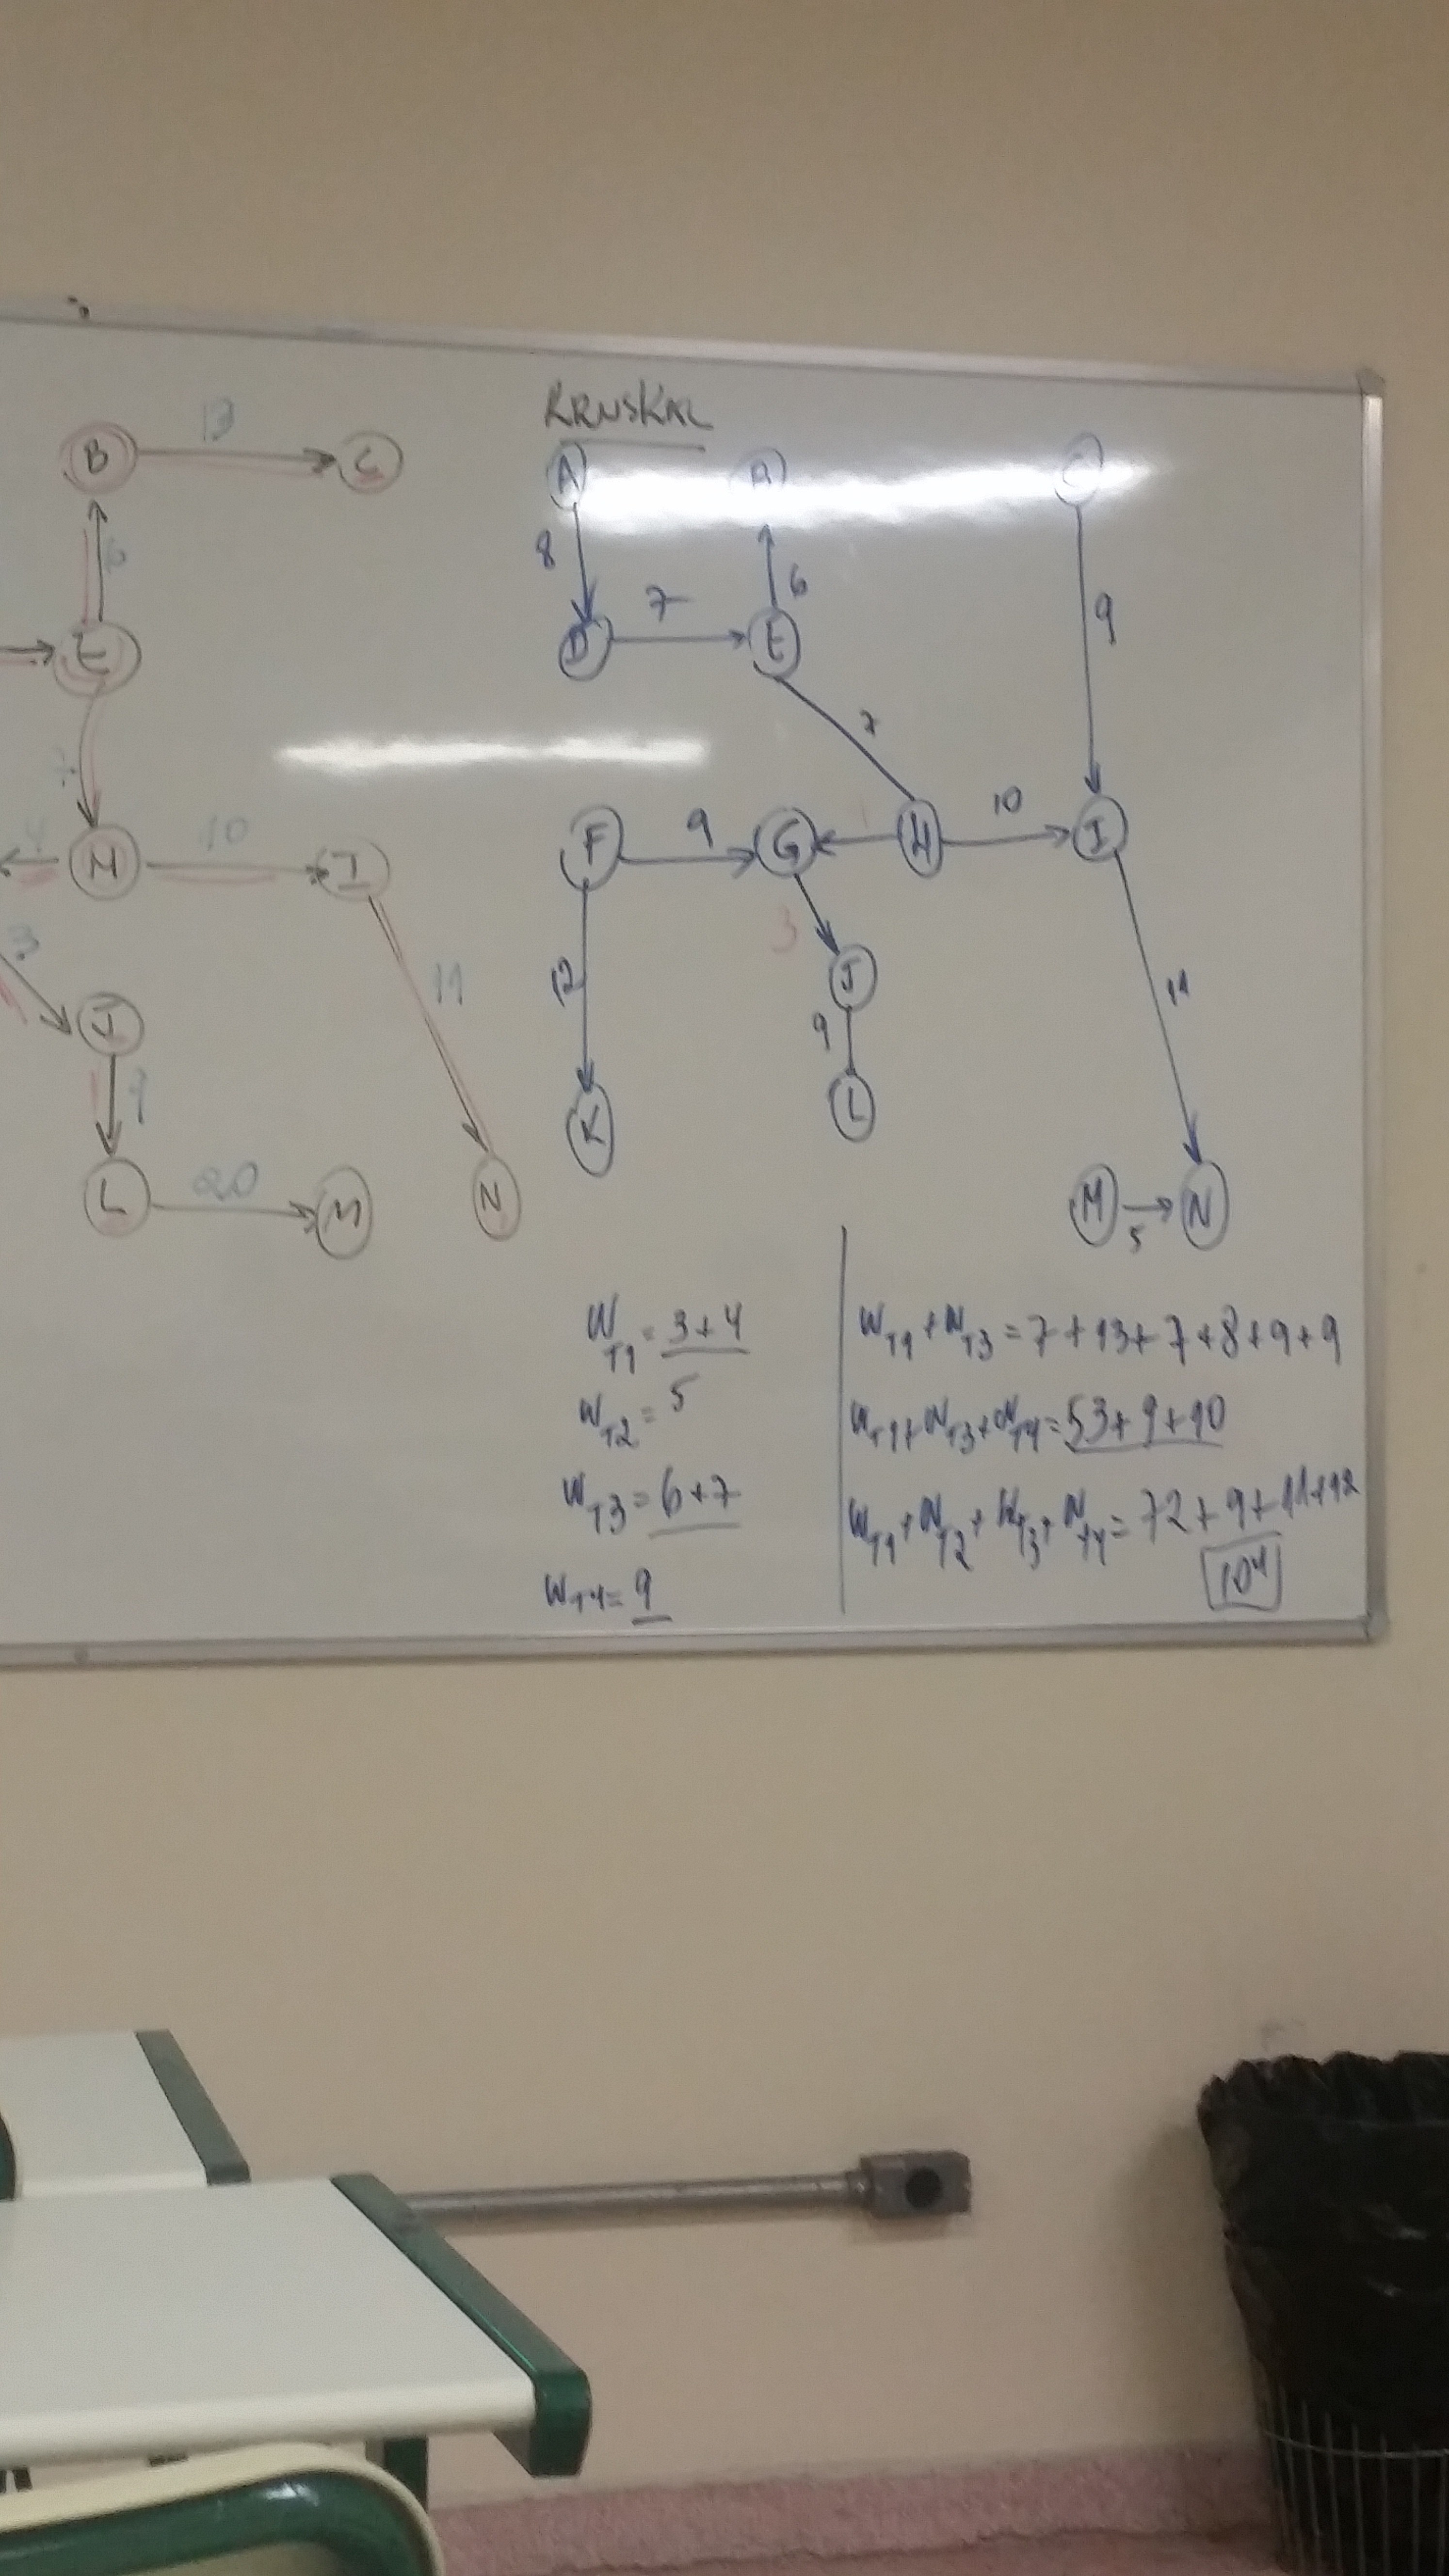 KRUSKAL
B 13 C
6
E
7
4 M 10 I
3
J
11
9
L 20 M N
A B C
8 6 9
D 7 E
7
F 9 G H 10 I
3
12 J 11
9
K L
M 5 N
WT1 = 3+4
WT2 = 5
WT3 = 6+7
WT4 = 9
WT1 + WT3 = 7+13+7+8+9+9
WT1+WT3+WT4 = 53+9+10
WT1+WT2+WT3+WT4 = 72+9+11+12
104